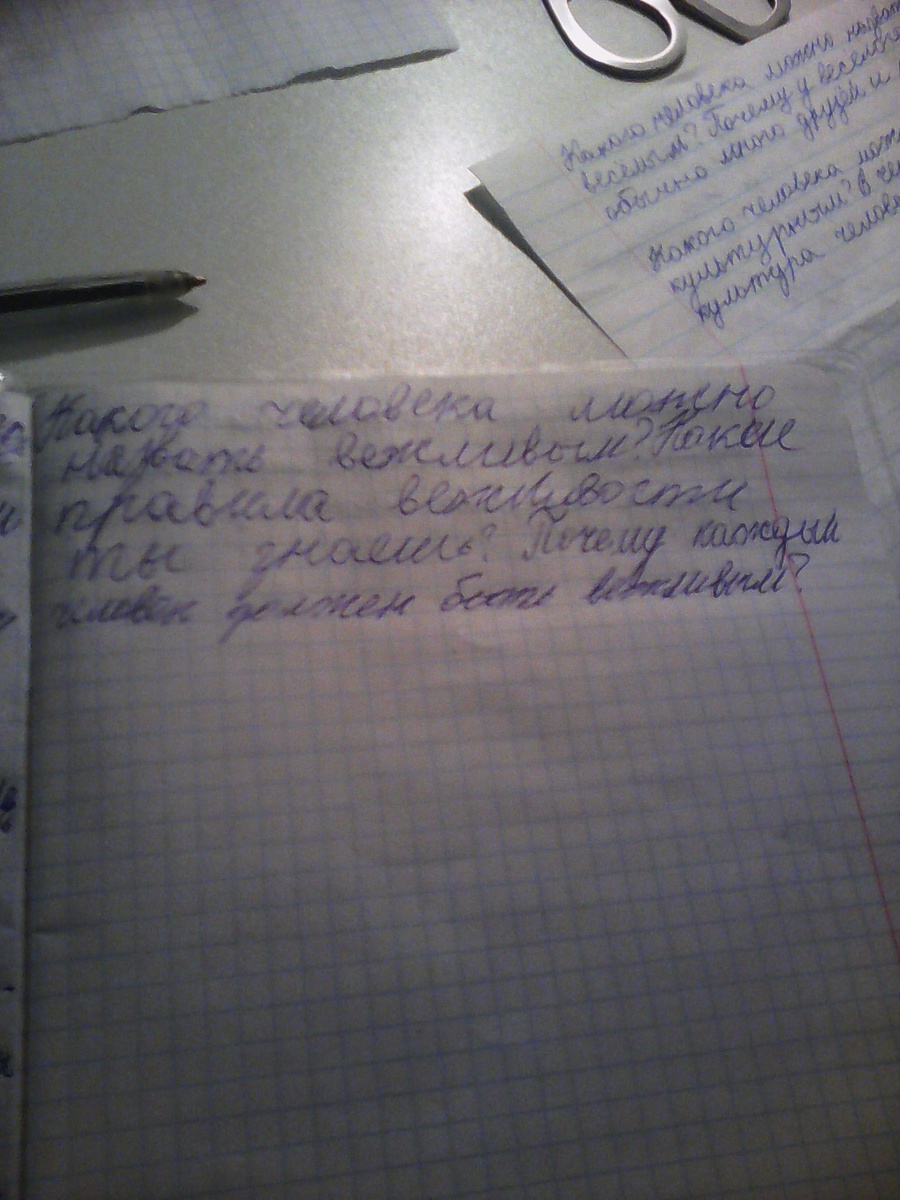 Какого человека можно назват
весёлым? Почему у весёлого
обычно много друзей и
Какого человека мож
культурным? В чё
культура челове
Какого человека можно
назвать вежливым? Какие
правила вежливости
ты знаешь? Почему каждый
человек должен быть вежливым?